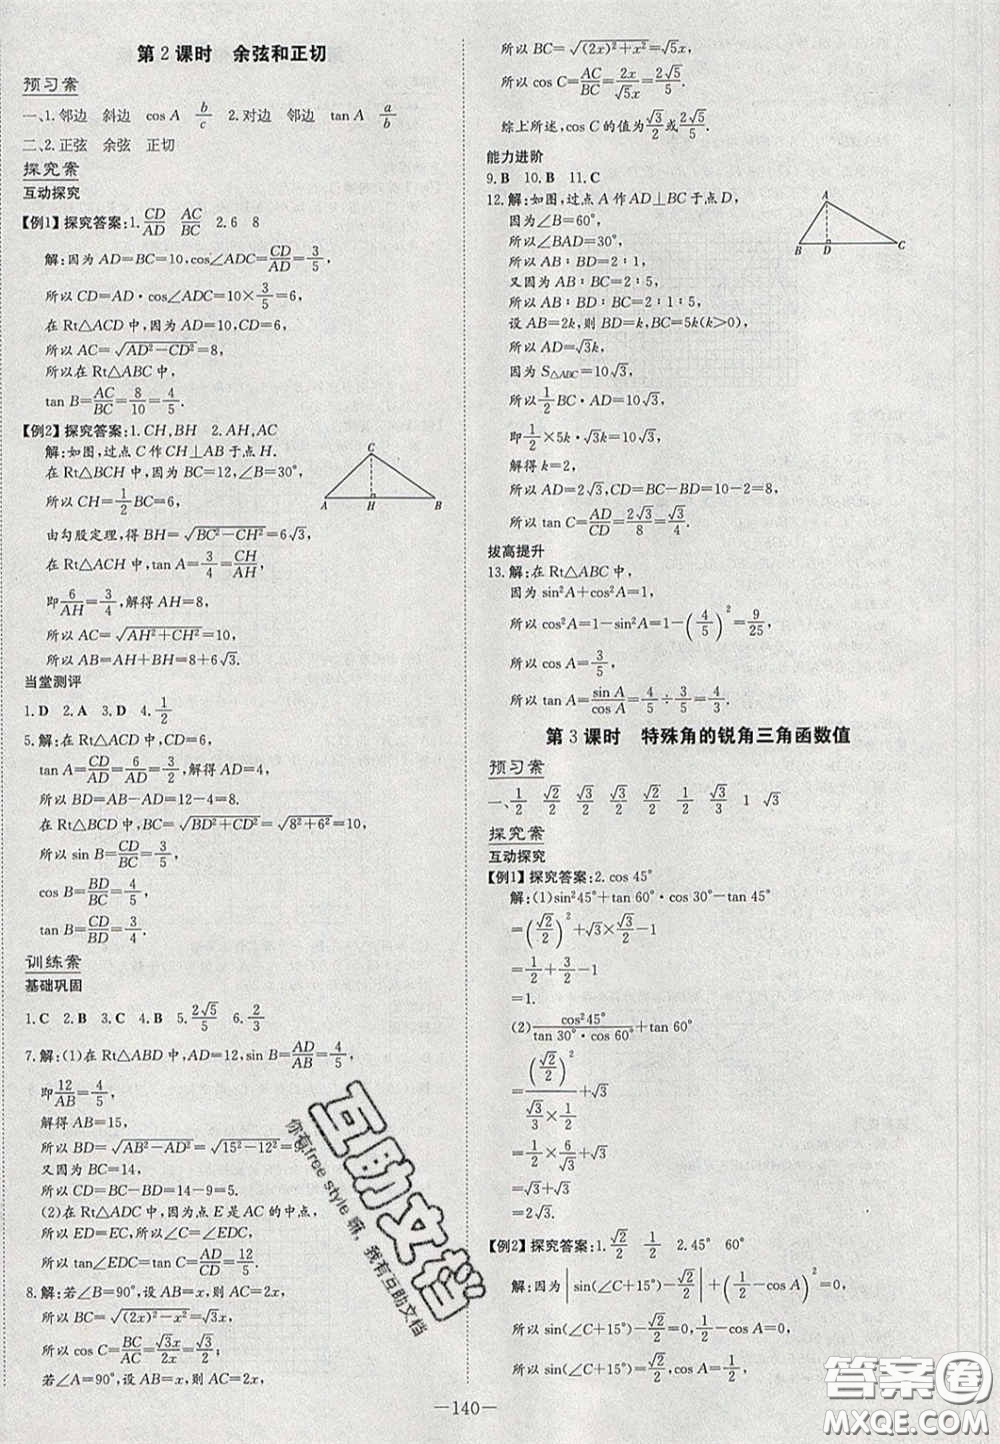 第2课时 余弦和正切
预习案
一、1.邻边 斜边 cos A b/c 2.对边 邻边 tan A a/b
二、2.正弦 余弦 正切
探究案
互动探究
【例1】探究答案:1.CD/AD AC/BC 2.6 8
解:因为 AD=BC=10,cos∠ADC=CD/AD=3/5,
所以 CD=AD·cos∠ADC=10×3/5=6,
在 Rt△ACD 中,因为 AD=10,
所以 AC=√(AD²-CD²)=8,
所以在 Rt△ABC 中,
tan B=AC/BC=8/10=4/5.
【例2】探究答案:1.CH,BH 2.AH,AC
解:如图,过点 C 作 CH⊥AB 于点 H.
在 Rt△BCH 中,因为 BC=12,∠B=30°,
所以 CH=1/2BC=6,
由勾股定理,得 BH=√(BC²-CH²)=6√3,
在 Rt△ACH 中,tan A=3/4=CH/AH,
即6/AH=3/4,解得 AH=8,
所以 AC=√(AH²+CH²)=10,
所以 AB=AH+BH=8+6√3.
C
A H B
当堂测评
1.D 2.A 3.D 4.1/2
5.解:在 Rt△ACD 中,CD=6,
tan A=CD/AD=6/AD=3/2,解得 AD=4,
所以 BD=AB-AD=12-4=8.
在 Rt△BCD 中,BC=√(BD²+CD²)=√(8²+6²)=10,
所以 sin B=CD/BC=3/5,
cos B=BD/BC=4/5,
tan B=CD/BD=3/4.
训练案
基础巩固
1.C 2.B 3.C 4.B 5.2√5/5 6.2/3
7.解:(1)在 Rt△ABD 中,AD=12,sin B=AD/AB=4/5,
即12/AB=4/5,
解得 AB=15,
所以 BD=√(AB²-AD²)=√(15²-12²)=9,
又因为 BC=14,
所以 CD=BC-BD=14-9=5.
(2)在 Rt△ADC 中,因为点 E 是 AC 的中点,
所以 ED=EC,所以∠C=∠EDC,
所以 tan∠EDC=tan C=AD/CD=12/5.
8.解:若∠B=90°,设 AB=x,则 AC=2x,
所以 BC=√((2x)²-x²)=√3x,
所以 cos C=BC/AC=√3x/2x=√3/2;
若∠A=90°,设 AB=x,则 AC=2x,
所以 BC=√((2x)²+x²)=√5x,
所以 cos C=AC/BC=2x/√5x=2√5/5.
综上所述,cos C 的值为√3/2或2√5/5.
能力进阶
9.B 10.B 11.C
12.解:如图,过点 A 作 AD⊥BC 于点 D,
因为∠B=60°,
所以∠BAD=30°,
所以 AB∶BD=2∶1,
又因为 AB∶BC=2∶5,
所以 AB∶BD∶BC=2∶1∶5,
设 AB=2k,则 BD=k,BC=5k(k>0),
所以 AD=√3k,
因为 S△ABC=10√3,
所以1/2BC·AD=10√3,
即1/2×5k·√3k=10√3,
解得 k=2,
所以 AD=2√3,CD=BC-BD=10-2=8,
所以 tan C=AD/CD=2√3/8=√3/4.
A
B D C
拔高提升
13.解:在 Rt△ABC 中,
因为 sin²A+cos²A=1,
所以 cos²A=1-sin²A=1-(4/5)²=9/25,
所以 cos A=3/5,
所以 tan A=sin A/cos A=4/5÷3/5=4/3.
第3课时 特殊角的锐角三角函数值
预习案
一、1/2 √2/2 √3/2 √3/2 √2/2 1/2 √3/3 1 √3
探究案
互动探究
【例1】探究答案:2.cos 45°
解:(1)sin²45°+tan 60°·cos 30°-tan 45°
=(√2/2)²+√3×√3/2-1
=1/2+3/2-1
=1.
(2)cos²45°/(tan 30°·cos 60°)+tan 60°
=(√2/2)²/(√3/3×1/2)+√3
=(1/2)/(√3/6)+√3
=√3+√3
=2√3.
【例2】探究答案:1.√2/2 1/2 2.45° 60°
解:因为|sin(∠C+15°)-√2/2|+(1/2-cos A)²=0,
所以 sin(∠C+15°)-√2/2=0,1/2-cos A=0,
所以 sin(∠C+15°)=√2/2,cos A=1/2,
—140—
互助文档
你有free style 嘛,我有互助文档
答案圈
MXQE.COM